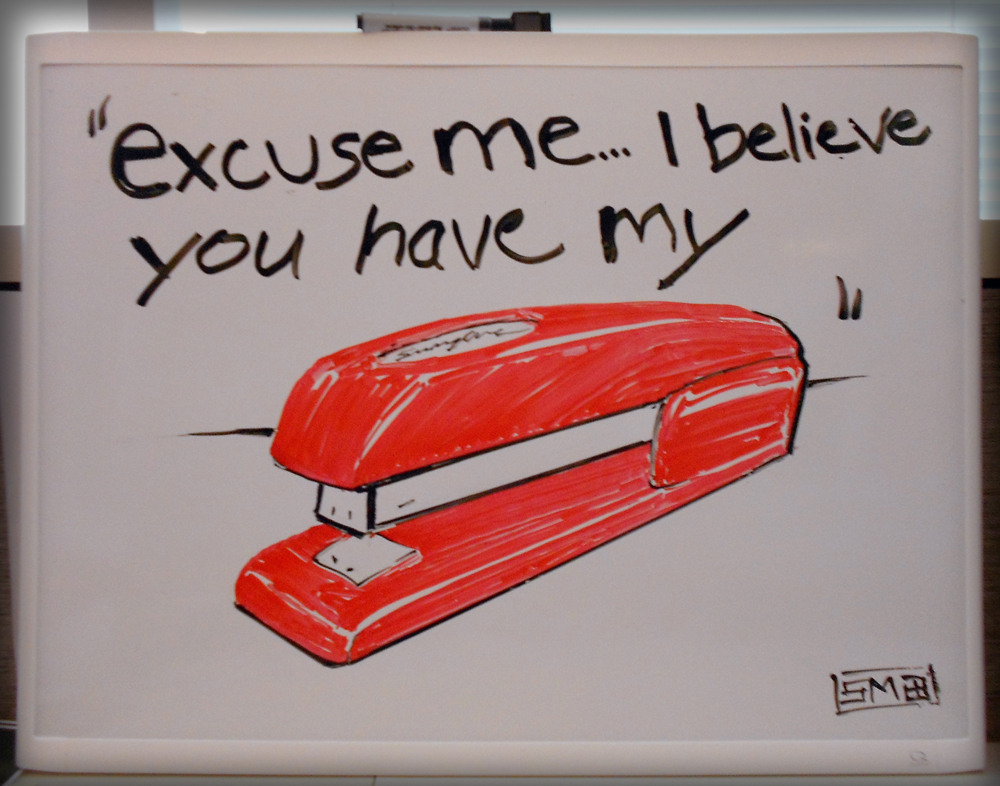 "excuse me... I believe
you have my
"
Swingline
SMB